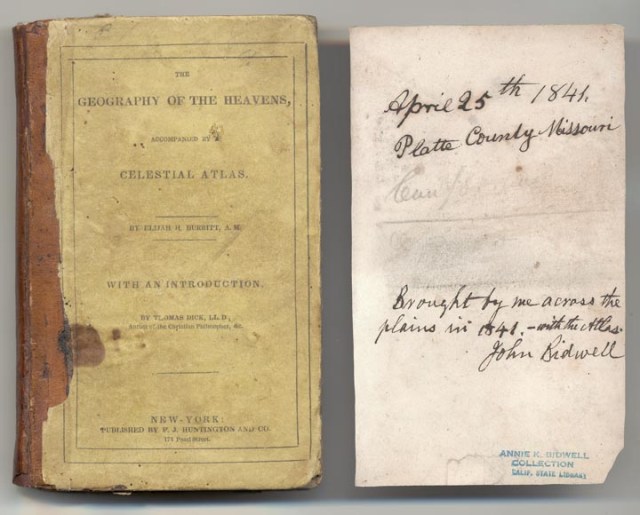 THE
GEOGRAPHY OF THE HEAVENS,
ACCOMPANIED BY A
CELESTIAL ATLAS.
BY ELIJAH H. BURRITT, A. M.
WITH AN INTRODUCTION,
BY THOMAS DICK, LL. D.,
Author of the Christian Philosopher, &c.
NEW-YORK:
PUBLISHED BY F. J. HUNTINGTON AND CO.
174 Pearl Street.
April 25th 1841.
Platte County Missouri
Brought by me across the
plains in 1841. - with the Atlas.
John Bidwell
ANNIE K. BIDWELL
COLLECTION
CALIF. STATE LIBRARY